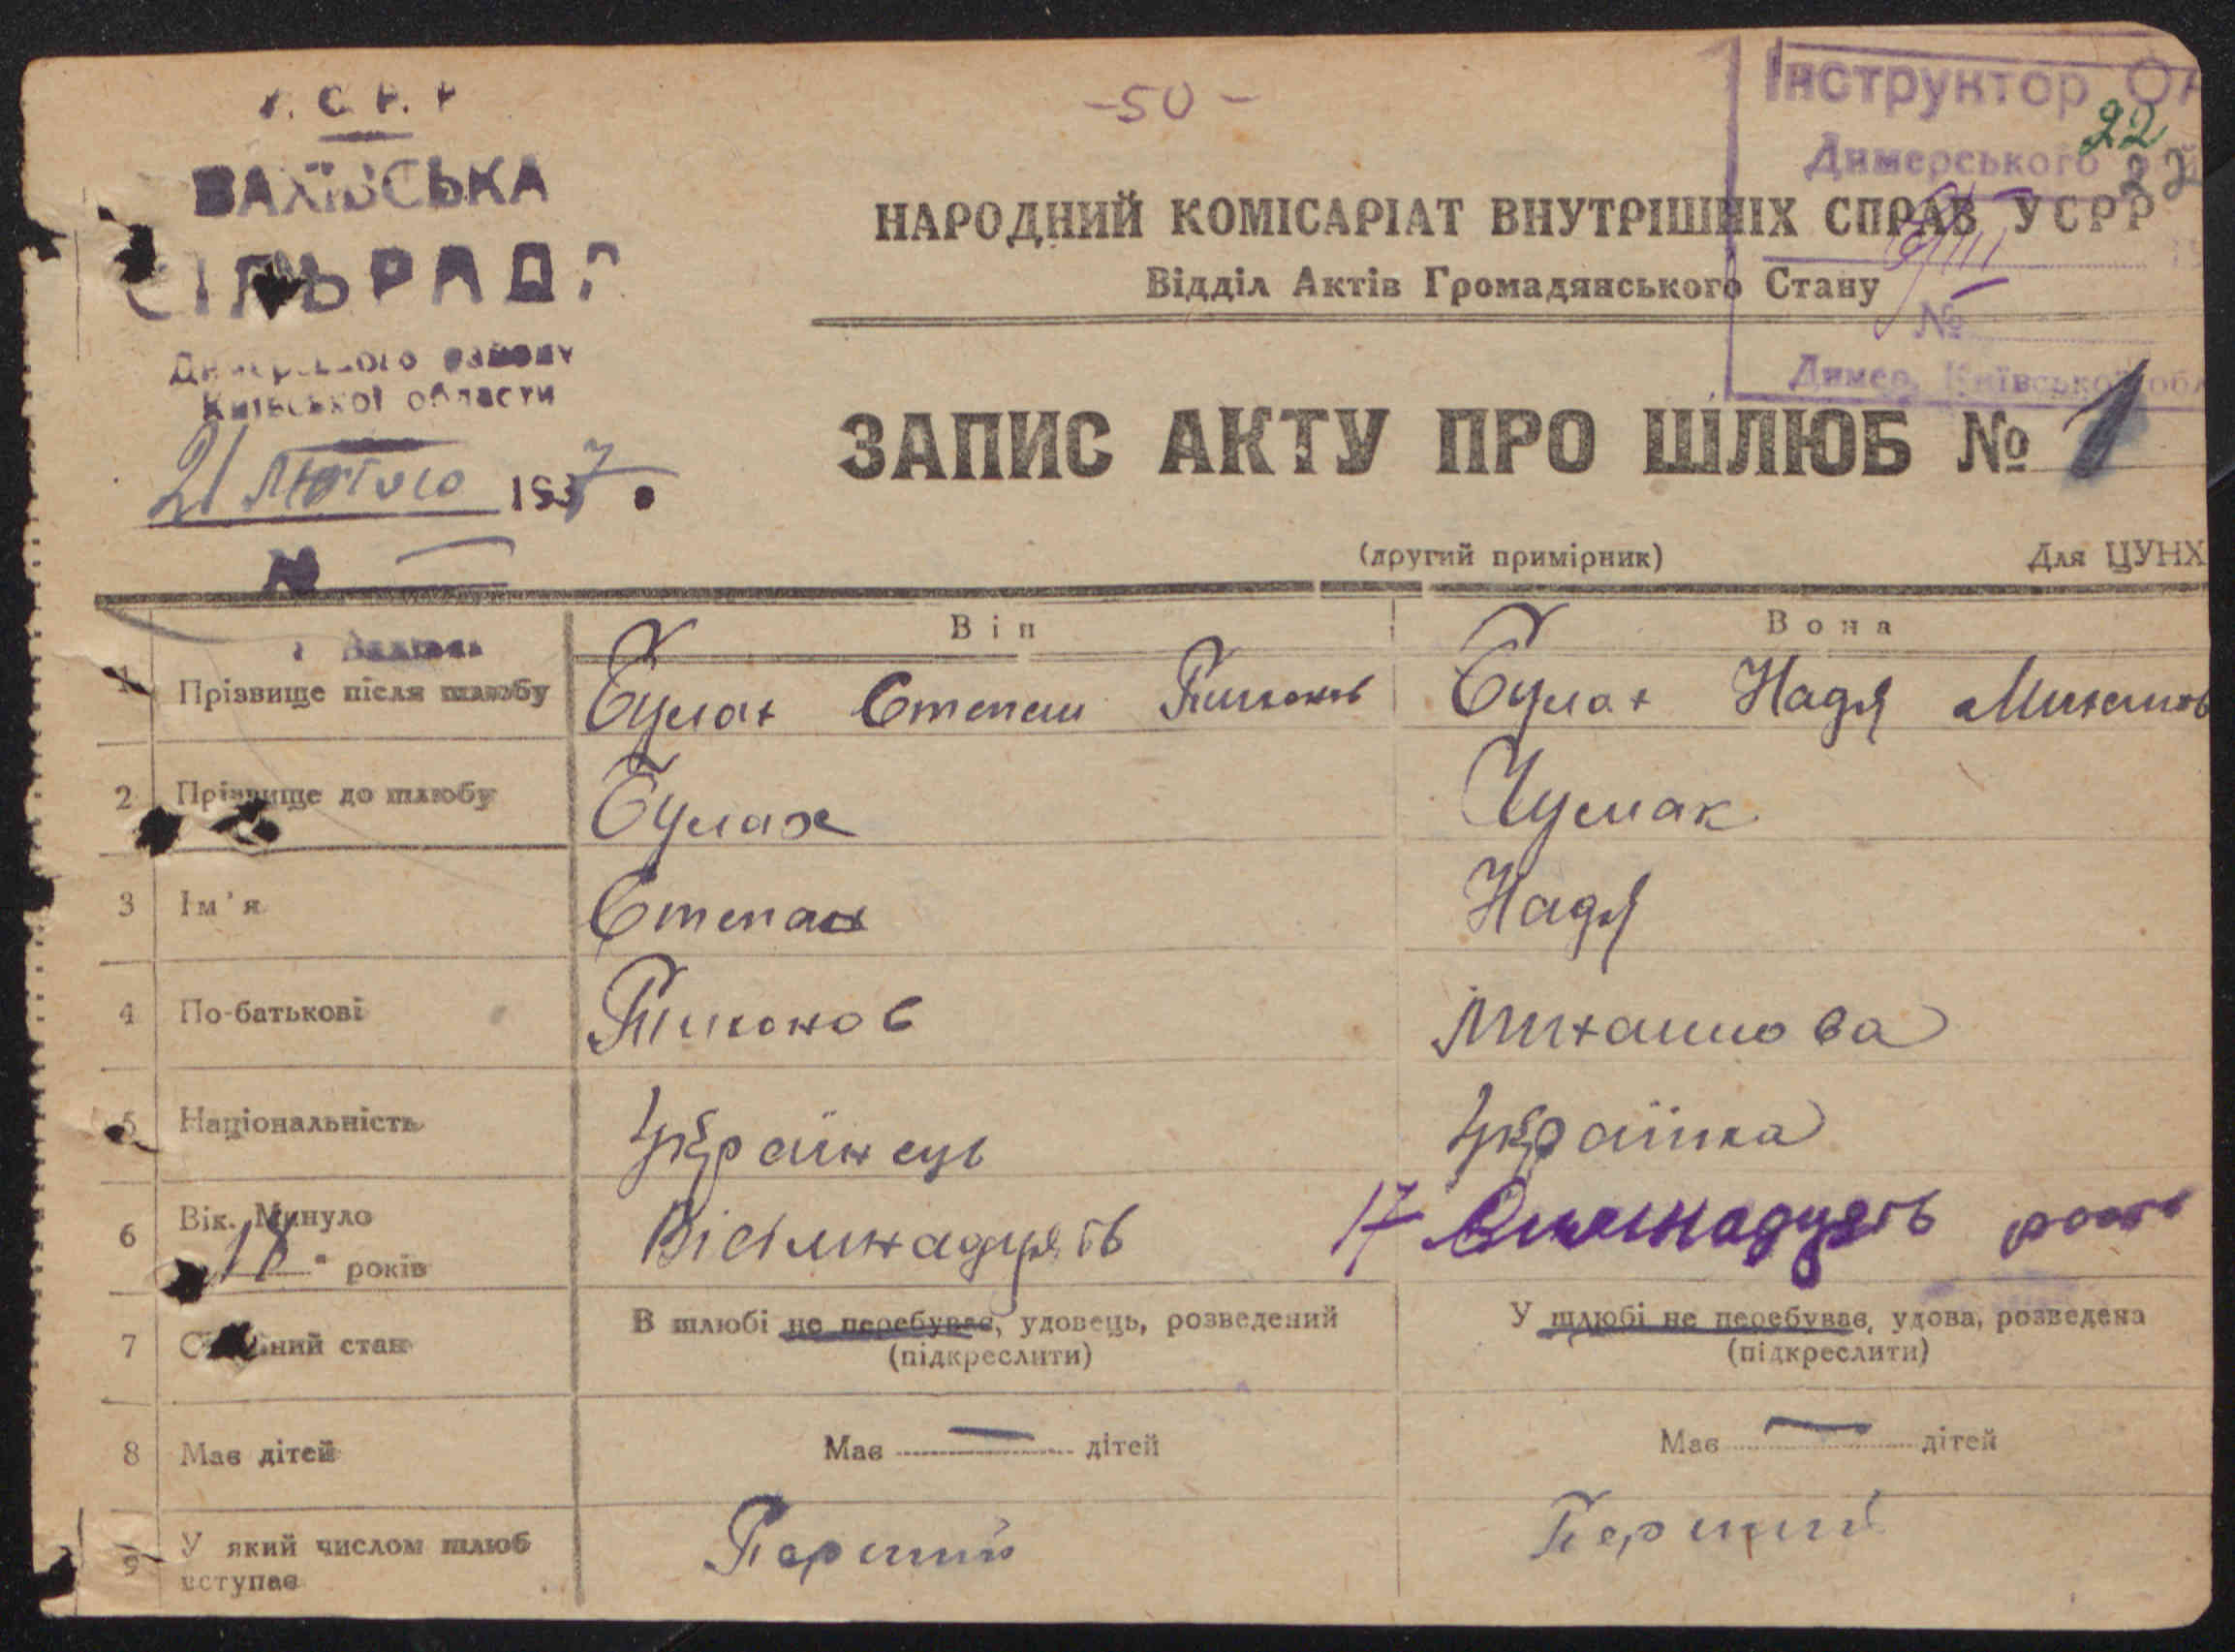 У.С.Р.Р
ВАХІВСЬКА
СІЛЬРАДА
Димерського району
Київської области
21 Лютого 1937
№
-50-
Інструктор
22
Димерського
22
НАРОДНИЙ КОМІСАРІАТ ВНУТРІШНІХ СПРАВ УСРР
Відділ Актів Громадянського Стану
№
Димер, Київської обл
ЗАПИС АКТУ ПРО ШЛЮБ № 1
(другий примірник) Для ЦУНХ
Він Вона
1 Прізвище після шлюбу Булах Степан Тихонов Булах Надя Михайлов
2 Прізвище до шлюбу Булах Чумак
3 Ім'я Степан Надя
4 По-батькові Тихонов Михайлова
5 Національність Українець Українка
6 Вік. Минуло 18 років Вісімнадцять 17
7 стан В шлюбі не перебуває, удовець, розведений У шлюбі не перебуває, удова, розведена
(підкреслити) (підкреслити)
8 Має дітей Має — дітей Має — дітей
9 У який числом шлюб вступає Перший Перший